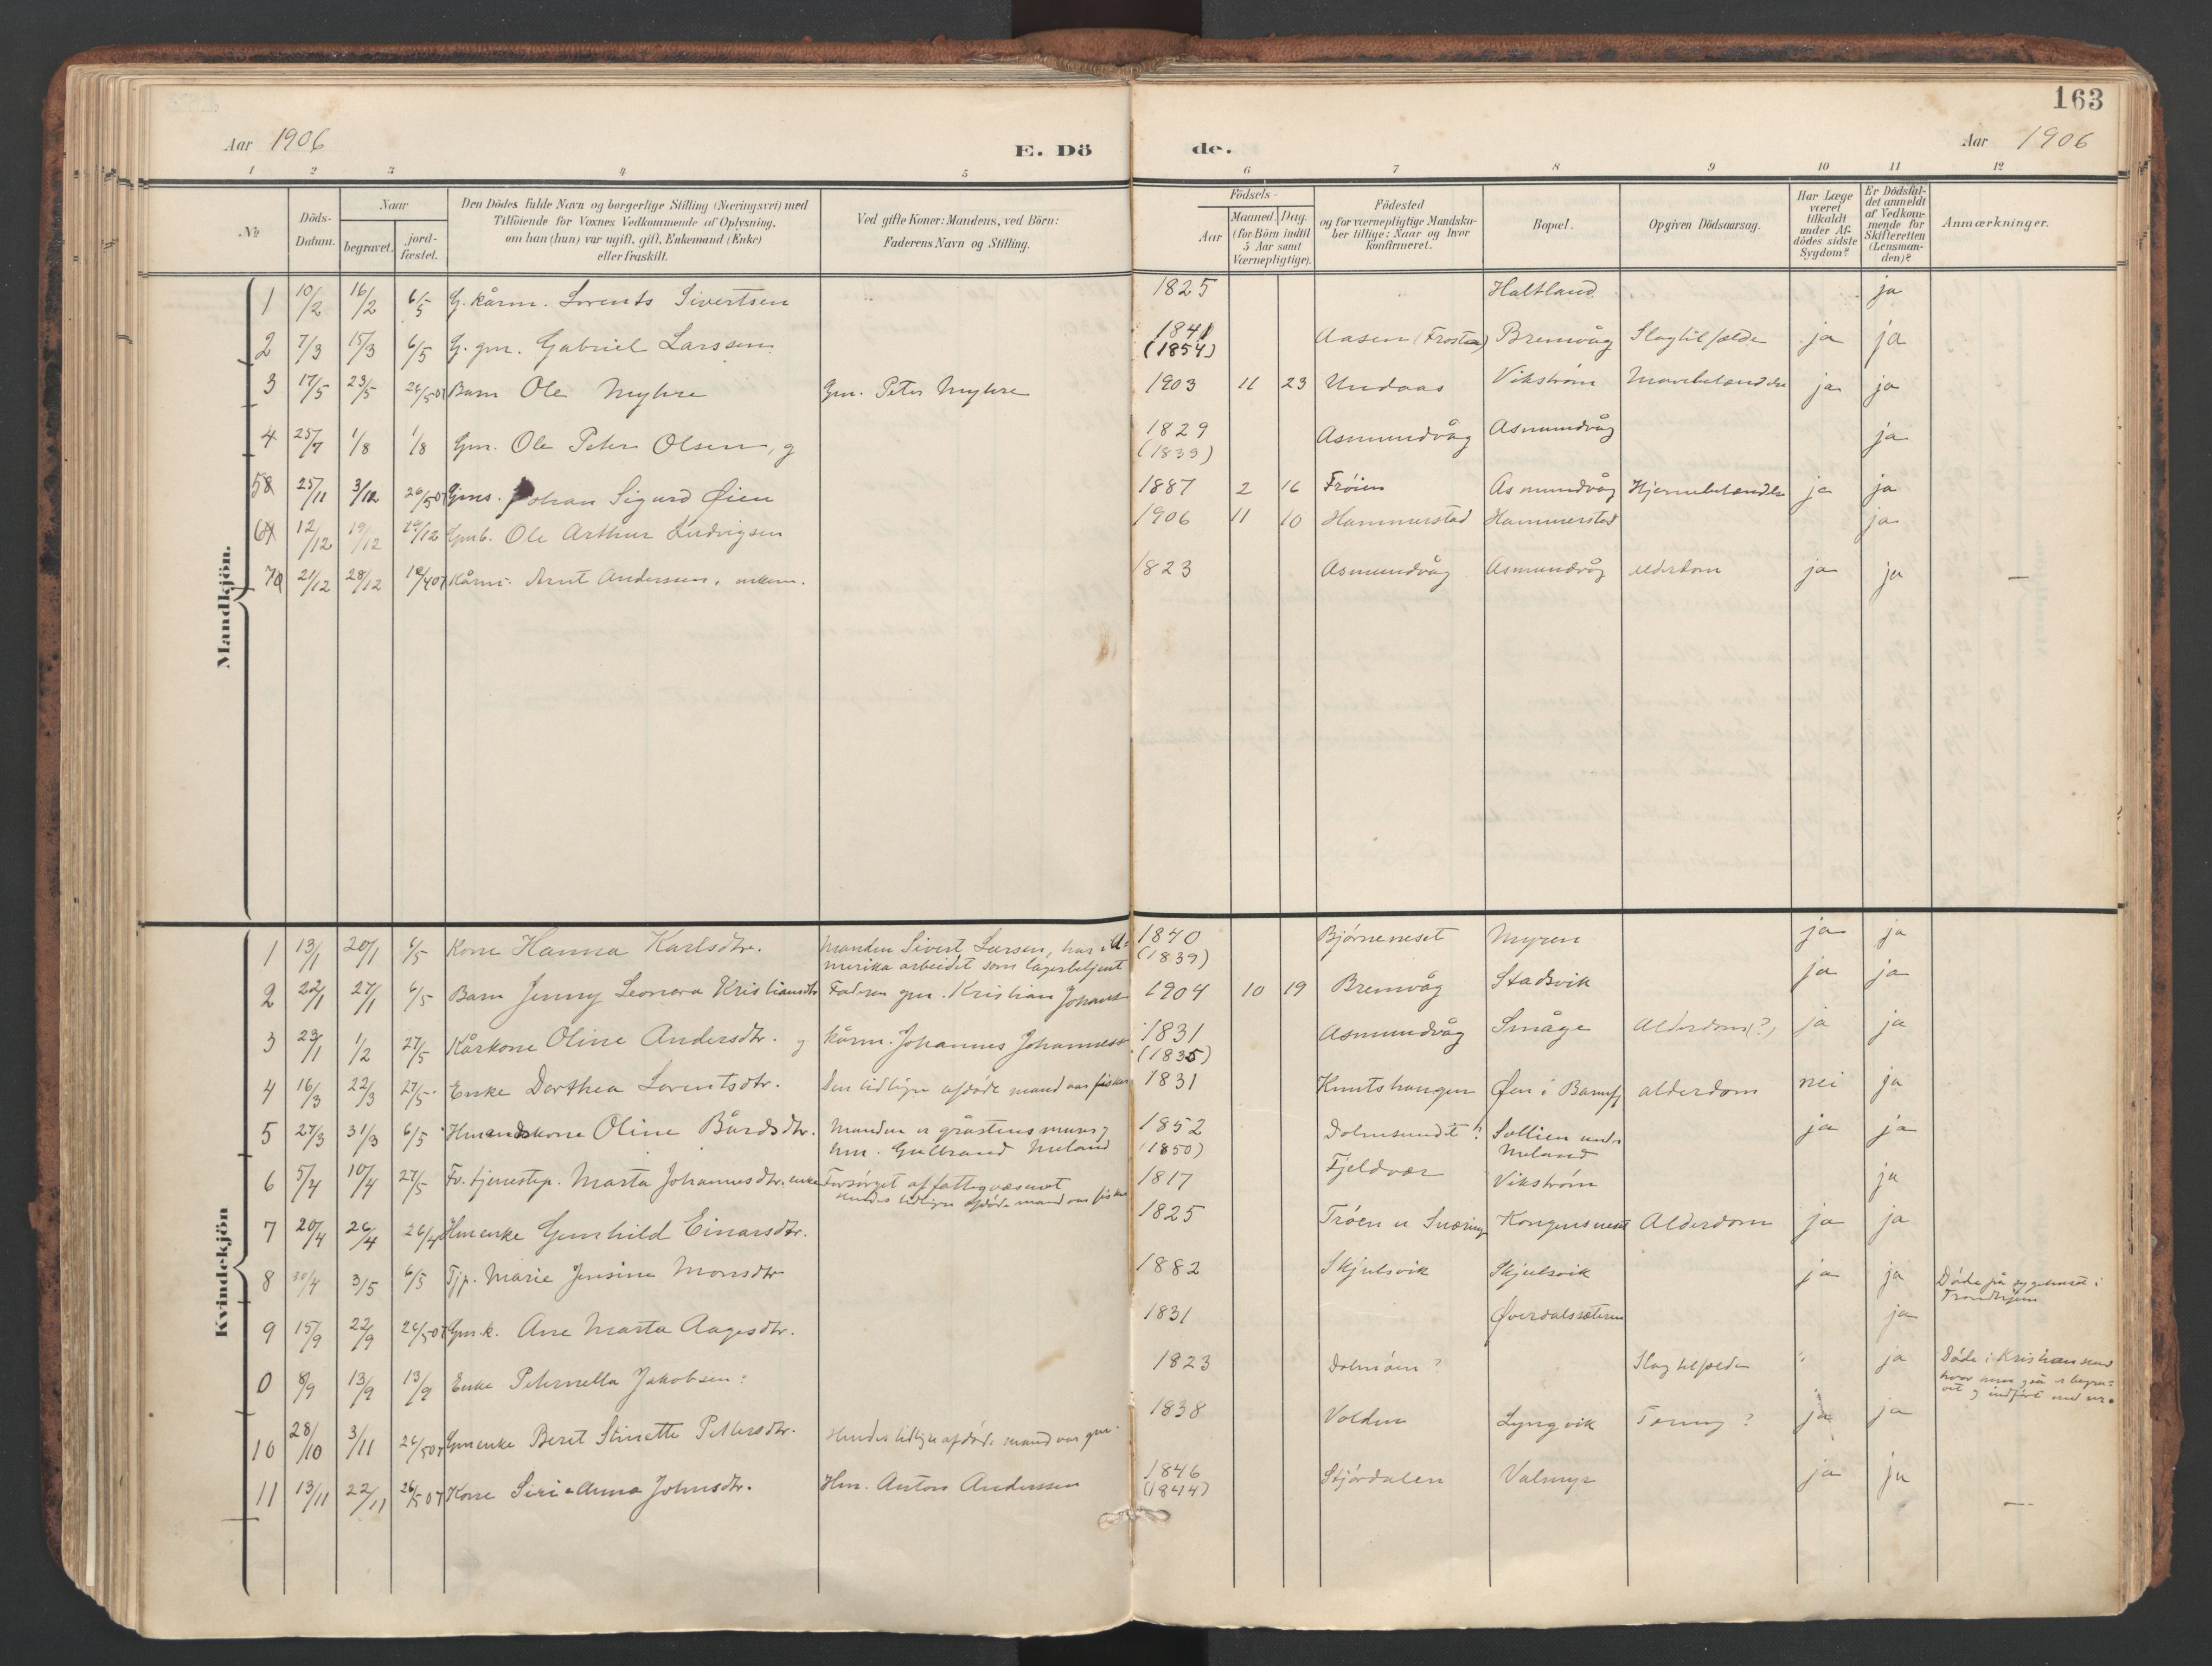 163
Aar 1906
E. Dö
de.
Aar 1906
1 2 3 4 5 6 7 8 9 10 11 12
№
Döds-
Datum.
Naar
begravet.
jord-
fæstet.
Den Dödes fulde Navn og borgerlige Stilling (Næringsvei) med
Tilföiende for Voxnes Vedkommende af Oplysning,
om han (hun) var ugift, gift, Enkemand (Enke)
eller fraskilt.
Ved gifte Koner: Mandens, ved Börn:
Faderens Navn og Stilling.
Födsels-
Aar
Maaned. Dag.
(for Börn indtil
5 Aar samt
Værnepligtige).
Födested
og for værnepligtige Mandska-
ber tillige: Naar og hvor
konfirmeret.
Bopæl.
Opgiven Dödsaarsag.
Har Læge
været
tilkaldt
under Af-
dödes sidste
Sygdom?
Er Dödsfal-
det anmeldt
af Vedkom-
mende for
Skifteretten
(Lensman-
den)?
Anmærkninger.
Mandkjön.
1 10/2 16/2 6/5 G. kårm. Lorents Sivertsen 1825 Haltland ja
2 7/3 15/3 6/5 G. gm. Gabriel Larssen 1841 Aasen (Frosta) Bremvåg Slagtilfælde ja ja
(1854)
3 17/5 23/5 26/507 Barn Ole Myhre Gm. Peter Myhre 1903 11 23 Undaas Vikstrøm Mavebetændelse ja ja
4 25/7 1/8 1/8 Gm. Ole Peter Olsen, g 1829 Asmundvåg Asmundvåg ja
(1839)
5 25/11 3/12 26/507 Gms. Johan Sigurd Øien 1887 2 16 Frøien Asmundvåg Hjernebetændelse ja ja
6 12/12 19/12 19/12 Gmb. Ole Arthur Ludvigsen 1906 11 10 Hammerstad Hammerstad ja
7 21/12 28/12 Kårm. Arnt Anderssen, enkem. 1823 Asmundvåg Asmundvåg Alderdom ja ja —
Kvindekjön
1 13/1 20/1 6/5 Kone Hanna Karlsdtr. Manden Sivert Larsen, har i A- 1840 Bjørneneset Myren ja ja
merika arbeidet som lagerbetjent (1839)
2 22/1 27/1 6/5 Barn Jenny Leonora Kristiansdtr Faderen gm. Kristian Johans 1904 10 19 Bremvåg Stadsvik ja ja
3 23/1 1/2 27/5 Kårkone Oline Andersdtr. g Kårm. Johannes Johanness 1831 Asmundvåg Småge Alderdom(?) ja ja
(1835)
4 16/3 22/3 27/5 Enke Dorthea Lorentsdtr. Den tidligere afdøde mand var fisker 1831 Knutshaugen Øen i Barmfj alderdom nei ja
5 27/3 31/3 6/5 Hmandskone Oline Bårdsdtr. Manden er gråstensmurer, 1852 Dolmsundet? Sollien under ja ja
hm. Gulbrand Meland (1850) Meland
6 5/4 10/4 27/5 Fr. tjenestep. Marta Johannesdtr. enke Forsørget af fattigvæsenet 1817 Fjeldvær Vikstrøm ja
Hendes tidligere afdøde mand var fisker
7 20/4 26/4 26/4 Hmenke Gunhild Einarsdtr. 1825 Trøen u Kongensnest Alderdom ja ja
8 30/4 3/5 6/5 Tjp. Marie Jensine Monsdtr 1882 Skjulsvik Skjulsvik ja ja Døde på sygehuset i
Trondhjem
9 15/9 22/9 26/507 Gm.k. Ane Marta Aagesdtr. 1831 Øverdalssæteren ja
0 8/9 13/9 13/9 Enke Peternella Jakobsen: 1823 Dolmøen? Slagtilfælde ja Døde i Kristiansund
hvor hun også er begra-
vet og indført med nr.
10 28/10 3/11 26/507 Gmenke Beret Stinette Pettersdtr. Hendes tidligere afdøde mand var gm. 1838 Volden Lyngvik Tæring? ja ja
11 13/11 22/11 26/507 Kone Siri-Anna Johnsdtr. Hm. Anton Anderssen 1846 Stjørdalen Valmyr ja ja —
(1844)